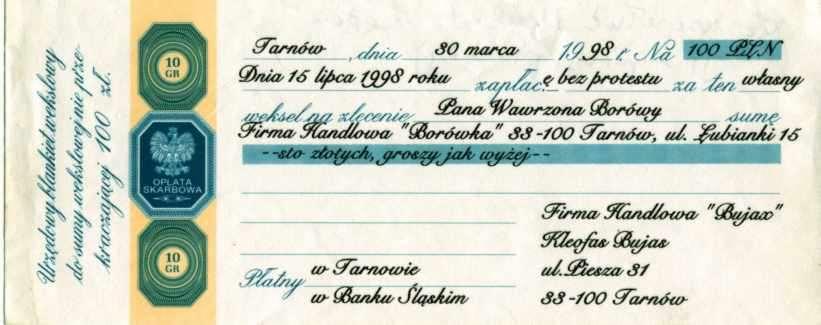 Urzędowy blankiet wekslowy
do sumy wekslowej nie prze-
kraczającej 100 zł.
10
GR
OPŁATA
SKARBOWA
10
GR
Tarnów, dnia 30 marca 1998 r. Na 100 PLN
Dnia 15 lipca 1998 roku zapłacę bez protestu za ten własny
weksel na zlecenie Pana Wawrzona Borówy sumę
Firma Handlowa "Borówka" 33-100 Tarnów, ul. Łubianki 15
--sto złotych, groszy jak wyżej--
Firma Handlowa "Bujax"
Kleofas Bujas
ul. Piesza 31
33-100 Tarnów
Płatny w Tarnowie
w Banku Śląskim